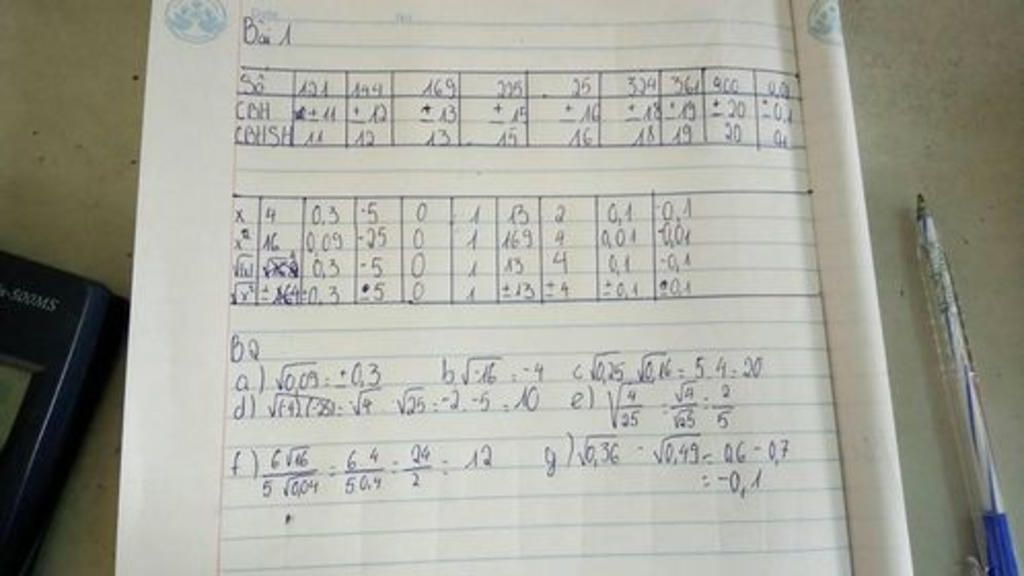 Bài 1
Số 121 144 169 225 25 324 361 400 0,01
CBH ±11 ±12 ±13 ±15 ±16 ±18 ±19 ±20 ±0,1
CBHSH 11 12 13 15 16 18 19 20 0,1
x 4 0,3 -5 0 1 13 2 0,1 -0,1
x² 16 0,09 -25 0 1 169 4 0,01 -0,01
0,3 -5 0 1 13 4 0,1 -0,1
√x² 0,3 ±5 0 1 ±13 ±4 ±0,1 ±0,1
B2
a) √0,09 = ±0,3 b √-16 = -4 c √0,25 . √0,16 = 5.4 = 20
d) √(-4).(-25) = √4 . √25 = -2 . -5 = 10 e) √4/25 = √4/√25 = 2/5
f) 6√16 / 5√0,04 = 6.4 / 5.0,4 = 24/2 = 12 g) √0,36 - √0,49 = 0,6 - 0,7
= -0,1
500MS